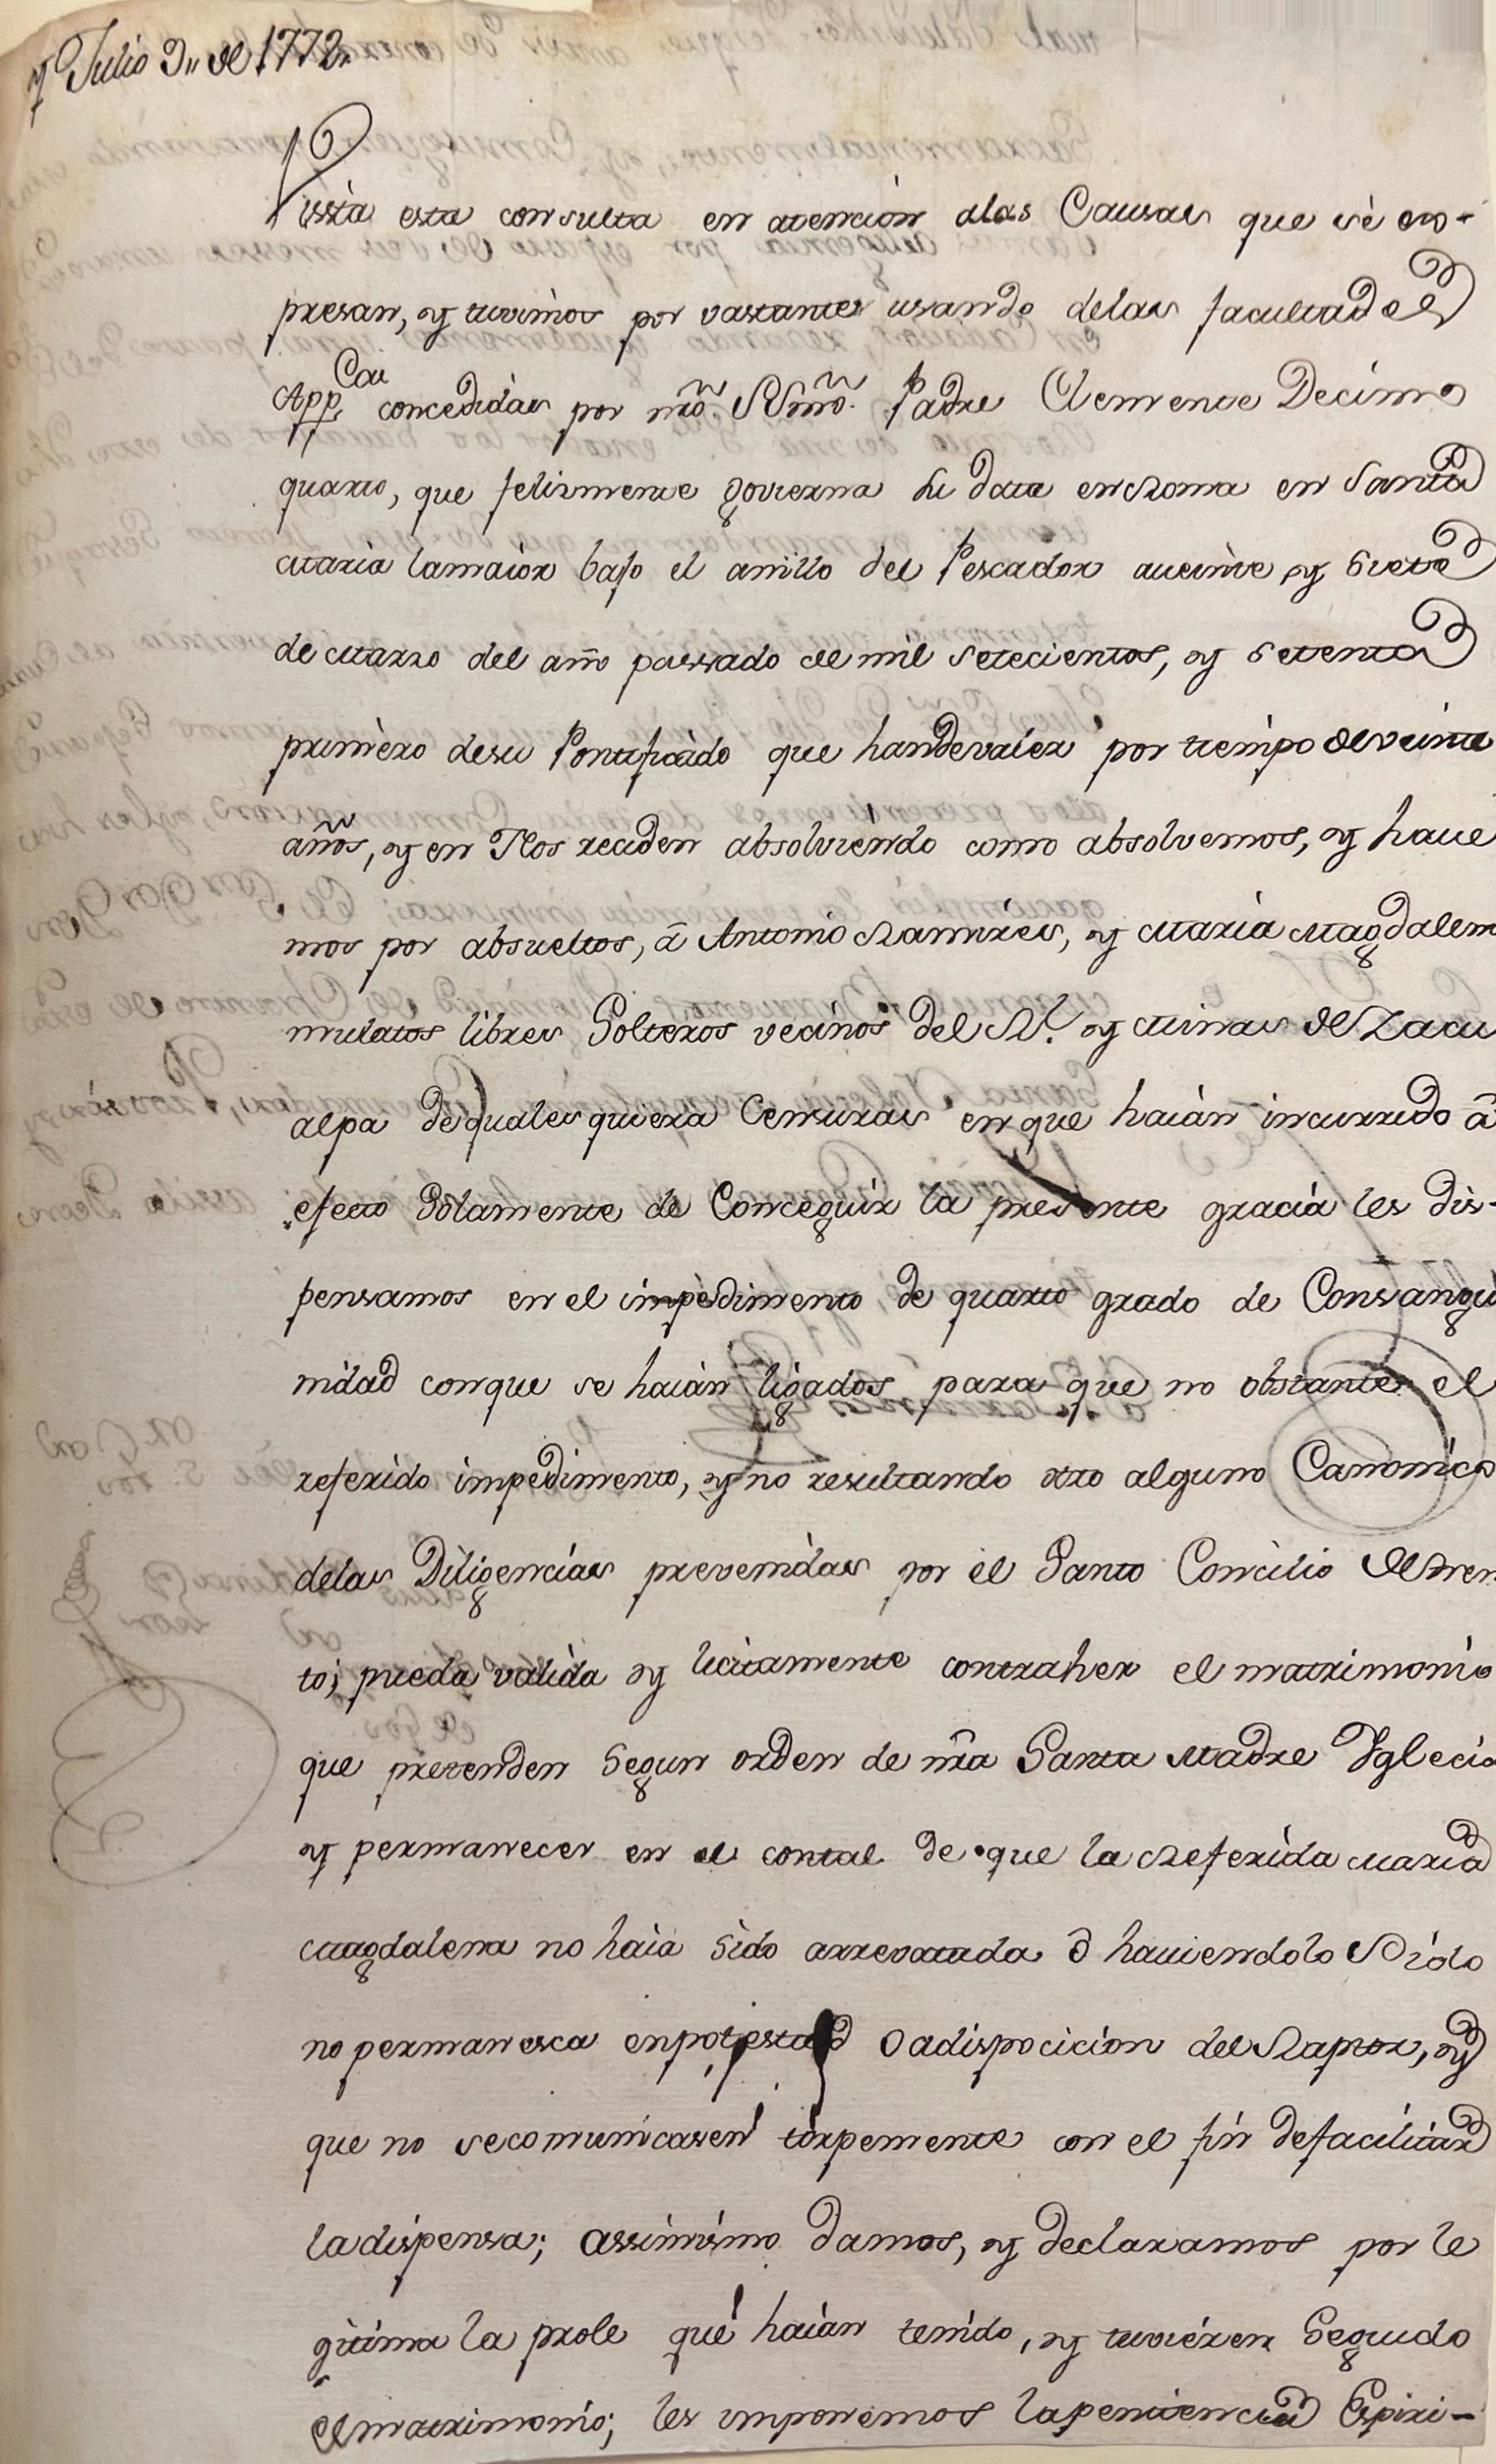 y Julio 3,, de 1772,,
Vissta esta consulta en atencion alas Causas que se ex-
presan, y tuvimos por vastantes usando delas facultades
Appcas concedidas por nrõ. SSmõ. Padre Clemente Decimo
quarto, que felizmente govierna su data en Roma en Santa
Maria la maior bajo el anillo del Pescador aveinte y Siete
de Marzo del año passado de mil setecientos, y setenta
primero desu Pontificado que handevaler por tiempo de veinte
años, y en Nos reciden absolviendo como absolvemos, y have
mos por absueltos, â Antonio Ramires, y Maria Magdalena
mulatos libres Solteros vecinos del Rl. y Minas de Zacu
alpa de quales quiera Censuras en que haian incurrido â
efecto Solamente de Conceguir la presente gracia les dis-
pensamos en el impedimento de quarto grado de Consangui
nidad conque se haian ligados para que no obstante el
referido impedimento, y no resultando otro alguno Canonico
delas Diligencias prevenidas por el Santo Concilio de Tren
to; pueda valida y licitamente contraher el matrimonio
que pretenden Segun orden de nrã Santa Madre Yglecia
y permanecer en el contal de que la Referida Maria
Magdalena no haia sido arrevatada ô haviendolo Sido
no permanesca enpotestad o adispocicion del Raptor, y
que no secomunicasen torpemente con el fin defacilitar
ladispensa; assimismo damos, y declaramos por le
gitima la prole que haian tenido, y tuvieren Seguido
el matrimonio; les imponemos lapenitencia Espiri-